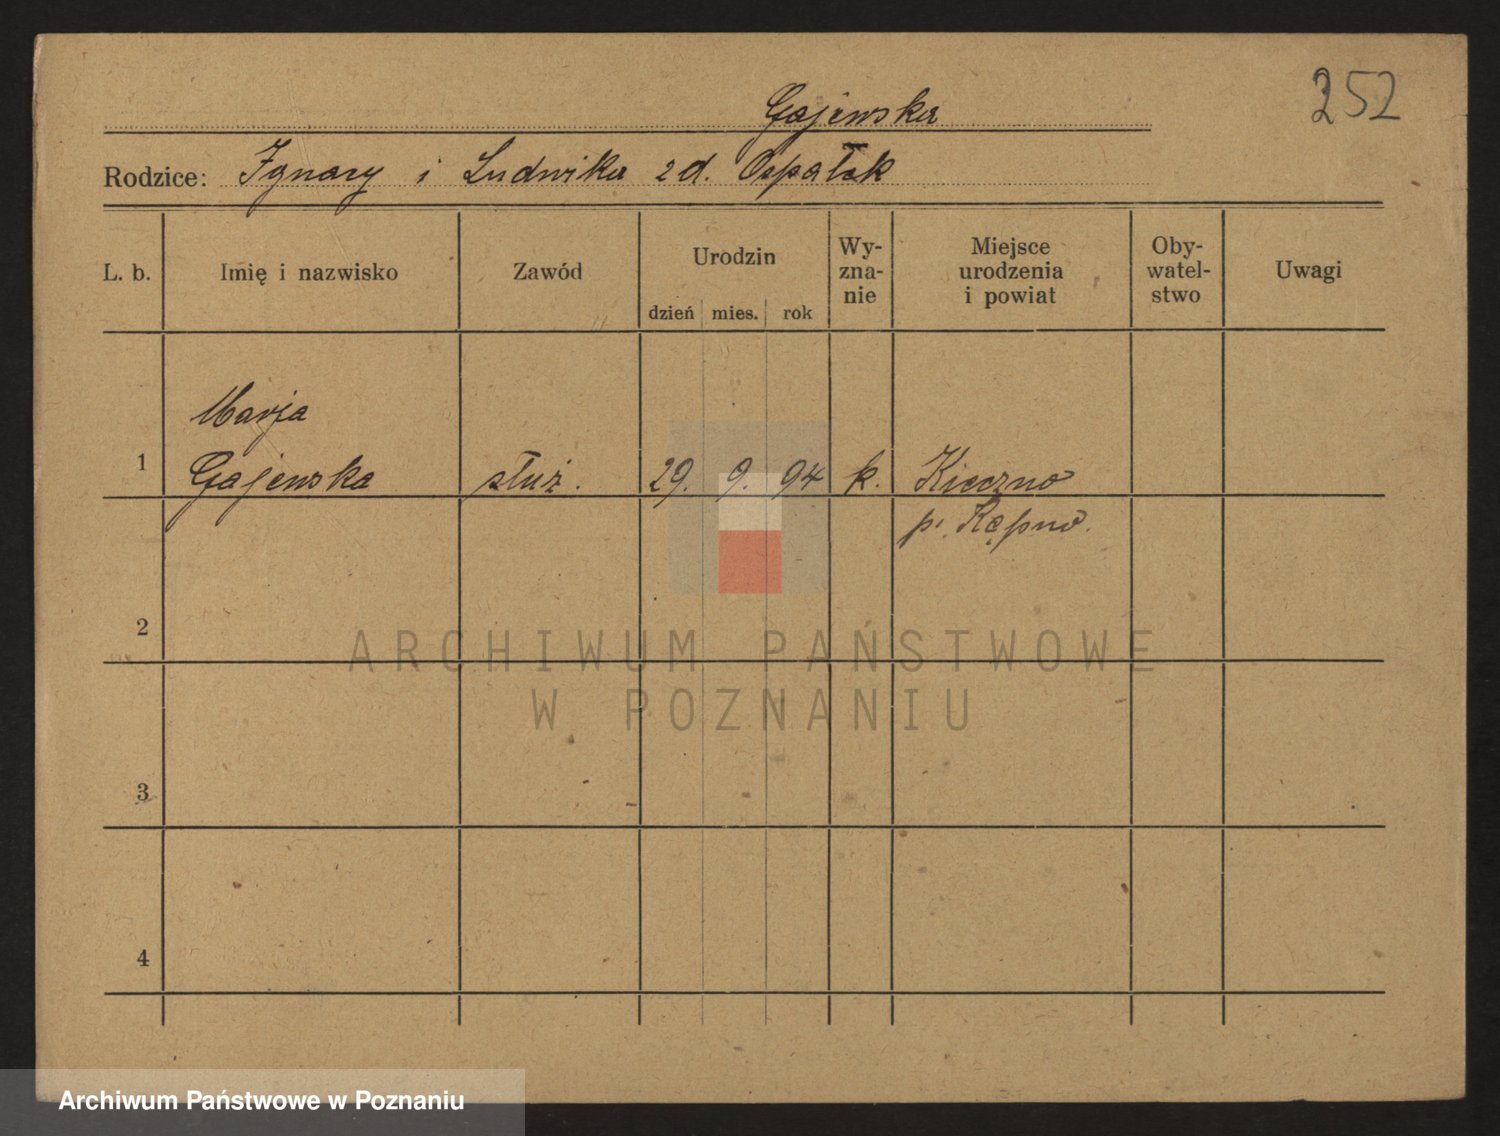 252
Gajewska
Rodzice: Ignacy i Ludwika zd. Ospałek
L. b.
Imię i nazwisko
Zawód
Urodzin
dzień mies. rok
Wy-
zna-
nie
Miejsce
urodzenia
i powiat
Oby-
watel-
stwo
Uwagi
Marja
1 Gajewska służ. 29. 9. 94 k.
p. Kępno.
2
3
4
ARCHIWUM PAŃSTWOWE
W POZNANIU
Archiwum Państwowe w Poznaniu